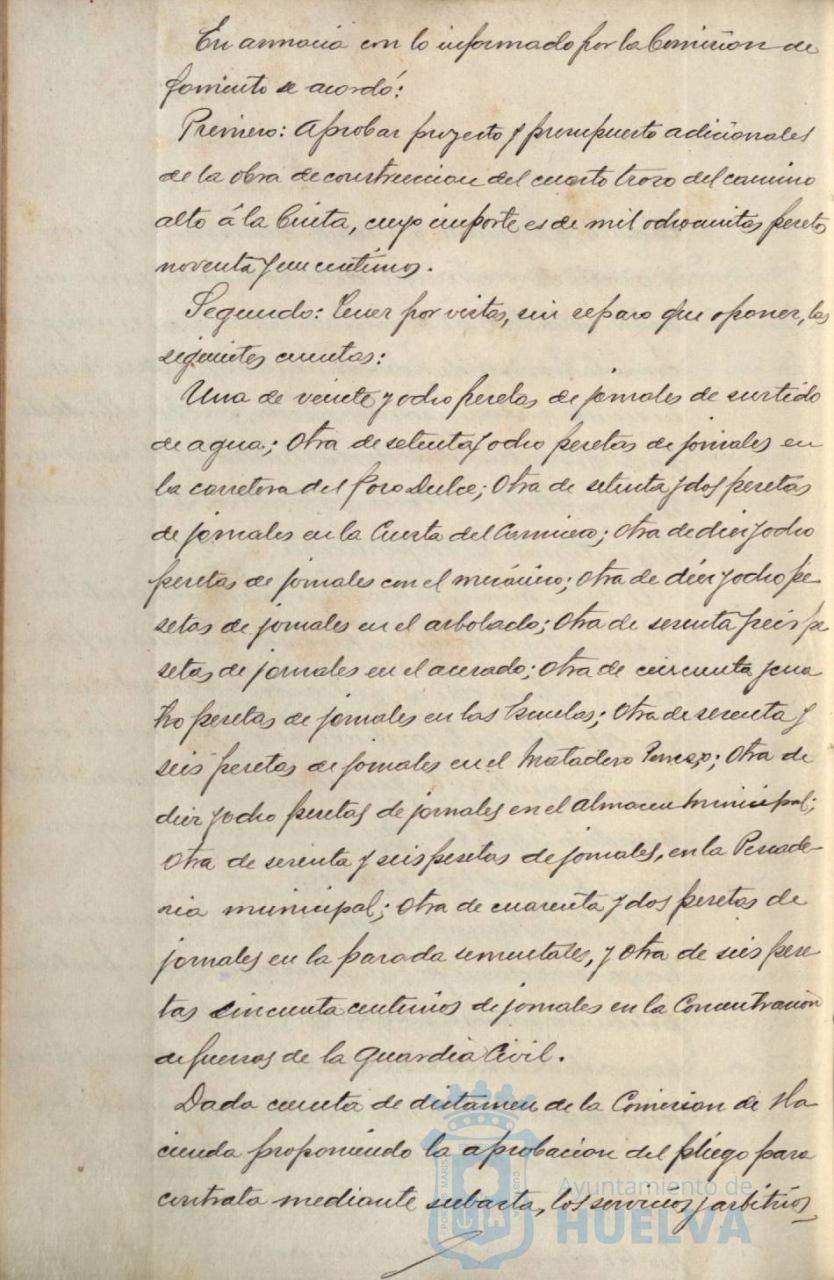 En armonia con lo informado por la Comision de
fomento se acordó:
Primero: Aprobar proyecto y presupuesto adicionales
de la obra de construccion del cuarto trozo del camino
alto á la Cinta, cuyo importe es de mil ochocientas pesetas
noventa y un centimos.
Segundo: Tener por vistas, sin reparo que oponer, las
siguientes cuentas:
Una de veinte y ocho pesetas de jornales de surtido
de agua; Otra de setenta y ocho pesetas de jornales en
la carretera del Pozo Dulce; Otra de setenta y dos pesetas
de jornales en la Cuesta del Carnicero; otra de diez y ocho
pesetas de jornales con el mecánico; Otra de diez y ocho pe
setas de jornales en el arbolado; Otra de sesenta y seis pe
setas de jornales en el acerado; Otra de cincuenta y cua
tro pesetas de jornales en las Escuelas; Otra de sesenta y
seis pesetas de jornales en el Matadero; Otra de
diez y ocho pesetas de jornales en el Almacen Municipal;
Otra de sesenta y seis pesetas de jornales, en la Pescade-
ria municipal; Otra de cuarenta y dos pesetas de
jornales en la parada sementales, y Otra de seis pese
tas cincuenta centimos de jornales en la Concentracion
de fuerzas de la Guardia Civil.
Dada cuenta de dictamen de la Comision de Ha
cienda proponiendo la aprobacion del pliego para
contrata mediante subasta, los servicios y arbitrios
Ayuntamiento de
HUELVA